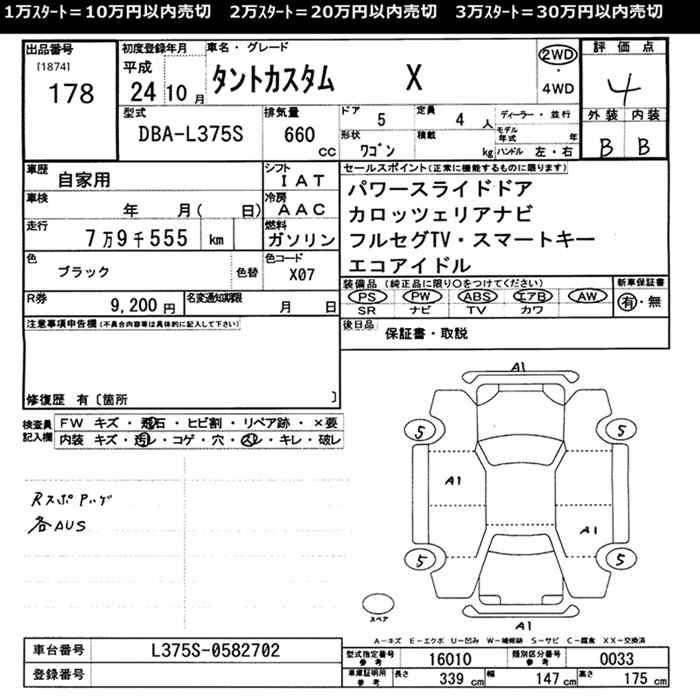 1万ｽﾀｰﾄ＝10万円以内売切　2万ｽﾀｰﾄ＝20万円以内売切　3万ｽﾀｰﾄ＝30万円以内売切
出品番号
[1874]
178
初度登録年月
平成
24 10 月
車名・グレード
タントカスタム X
2WD
・
4WD
評価点
4
外装 内装
B B
型式
DBA-L375S
排気量
660
CC
ドア
5
定員
4 人
形状
ワゴン
積載
kg
ディーラー・並行
モデル年式 年
ハンドル 左・右
車歴
自家用
シフト
IAT
車検
年 月( 日)
冷房
AAC
走行
7万9千555 km
燃料
ガソリン
色
ブラック
色替
色コード
X07
R券
9,200 円
名変通知期限
月 日
セールスポイント(正常に機能するものに限ります)
パワースライドドア
カロッツェリアナビ
フルセグTV・スマートキー
エコアイドル
装備品(純正品に限り○をつけてください)
PS PW ABS エアB AW
SR ナビ TV カワ
新車保証書
有・無
後日品
保証書・取説
注意事項申告欄(不具合内容等は具体的に記入して下さい)
修復歴 有〔箇所 〕
検査員
記入欄
FW キズ・飛石・ヒビ割・リペア跡・×要
内装 キズ・汚レ・コゲ・穴・スレ・キレ・破レ
Rスポ
各AUS
A1
5 5
A1
A1
5 5
スペア
A1
A－キズ E－エクボ U－凹み W－補修跡 S－サビ C－腐食 XX－交換済
車台番号
L375S-0582702
登録番号
型式指定番号
参考
16010
類別区分番号
参考
0033
車庫証明用
参考
長さ 339 cm 幅 147 cm 高さ 175 cm